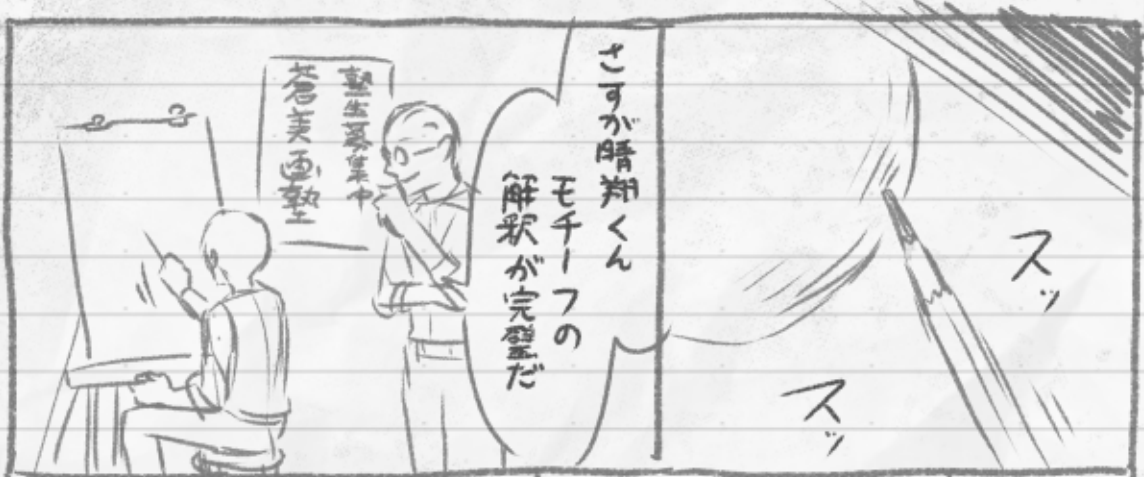 スッ
スッ
さすが晴翔くん
モチーフの
解釈が完璧だ
塾生募集中
蒼美画塾